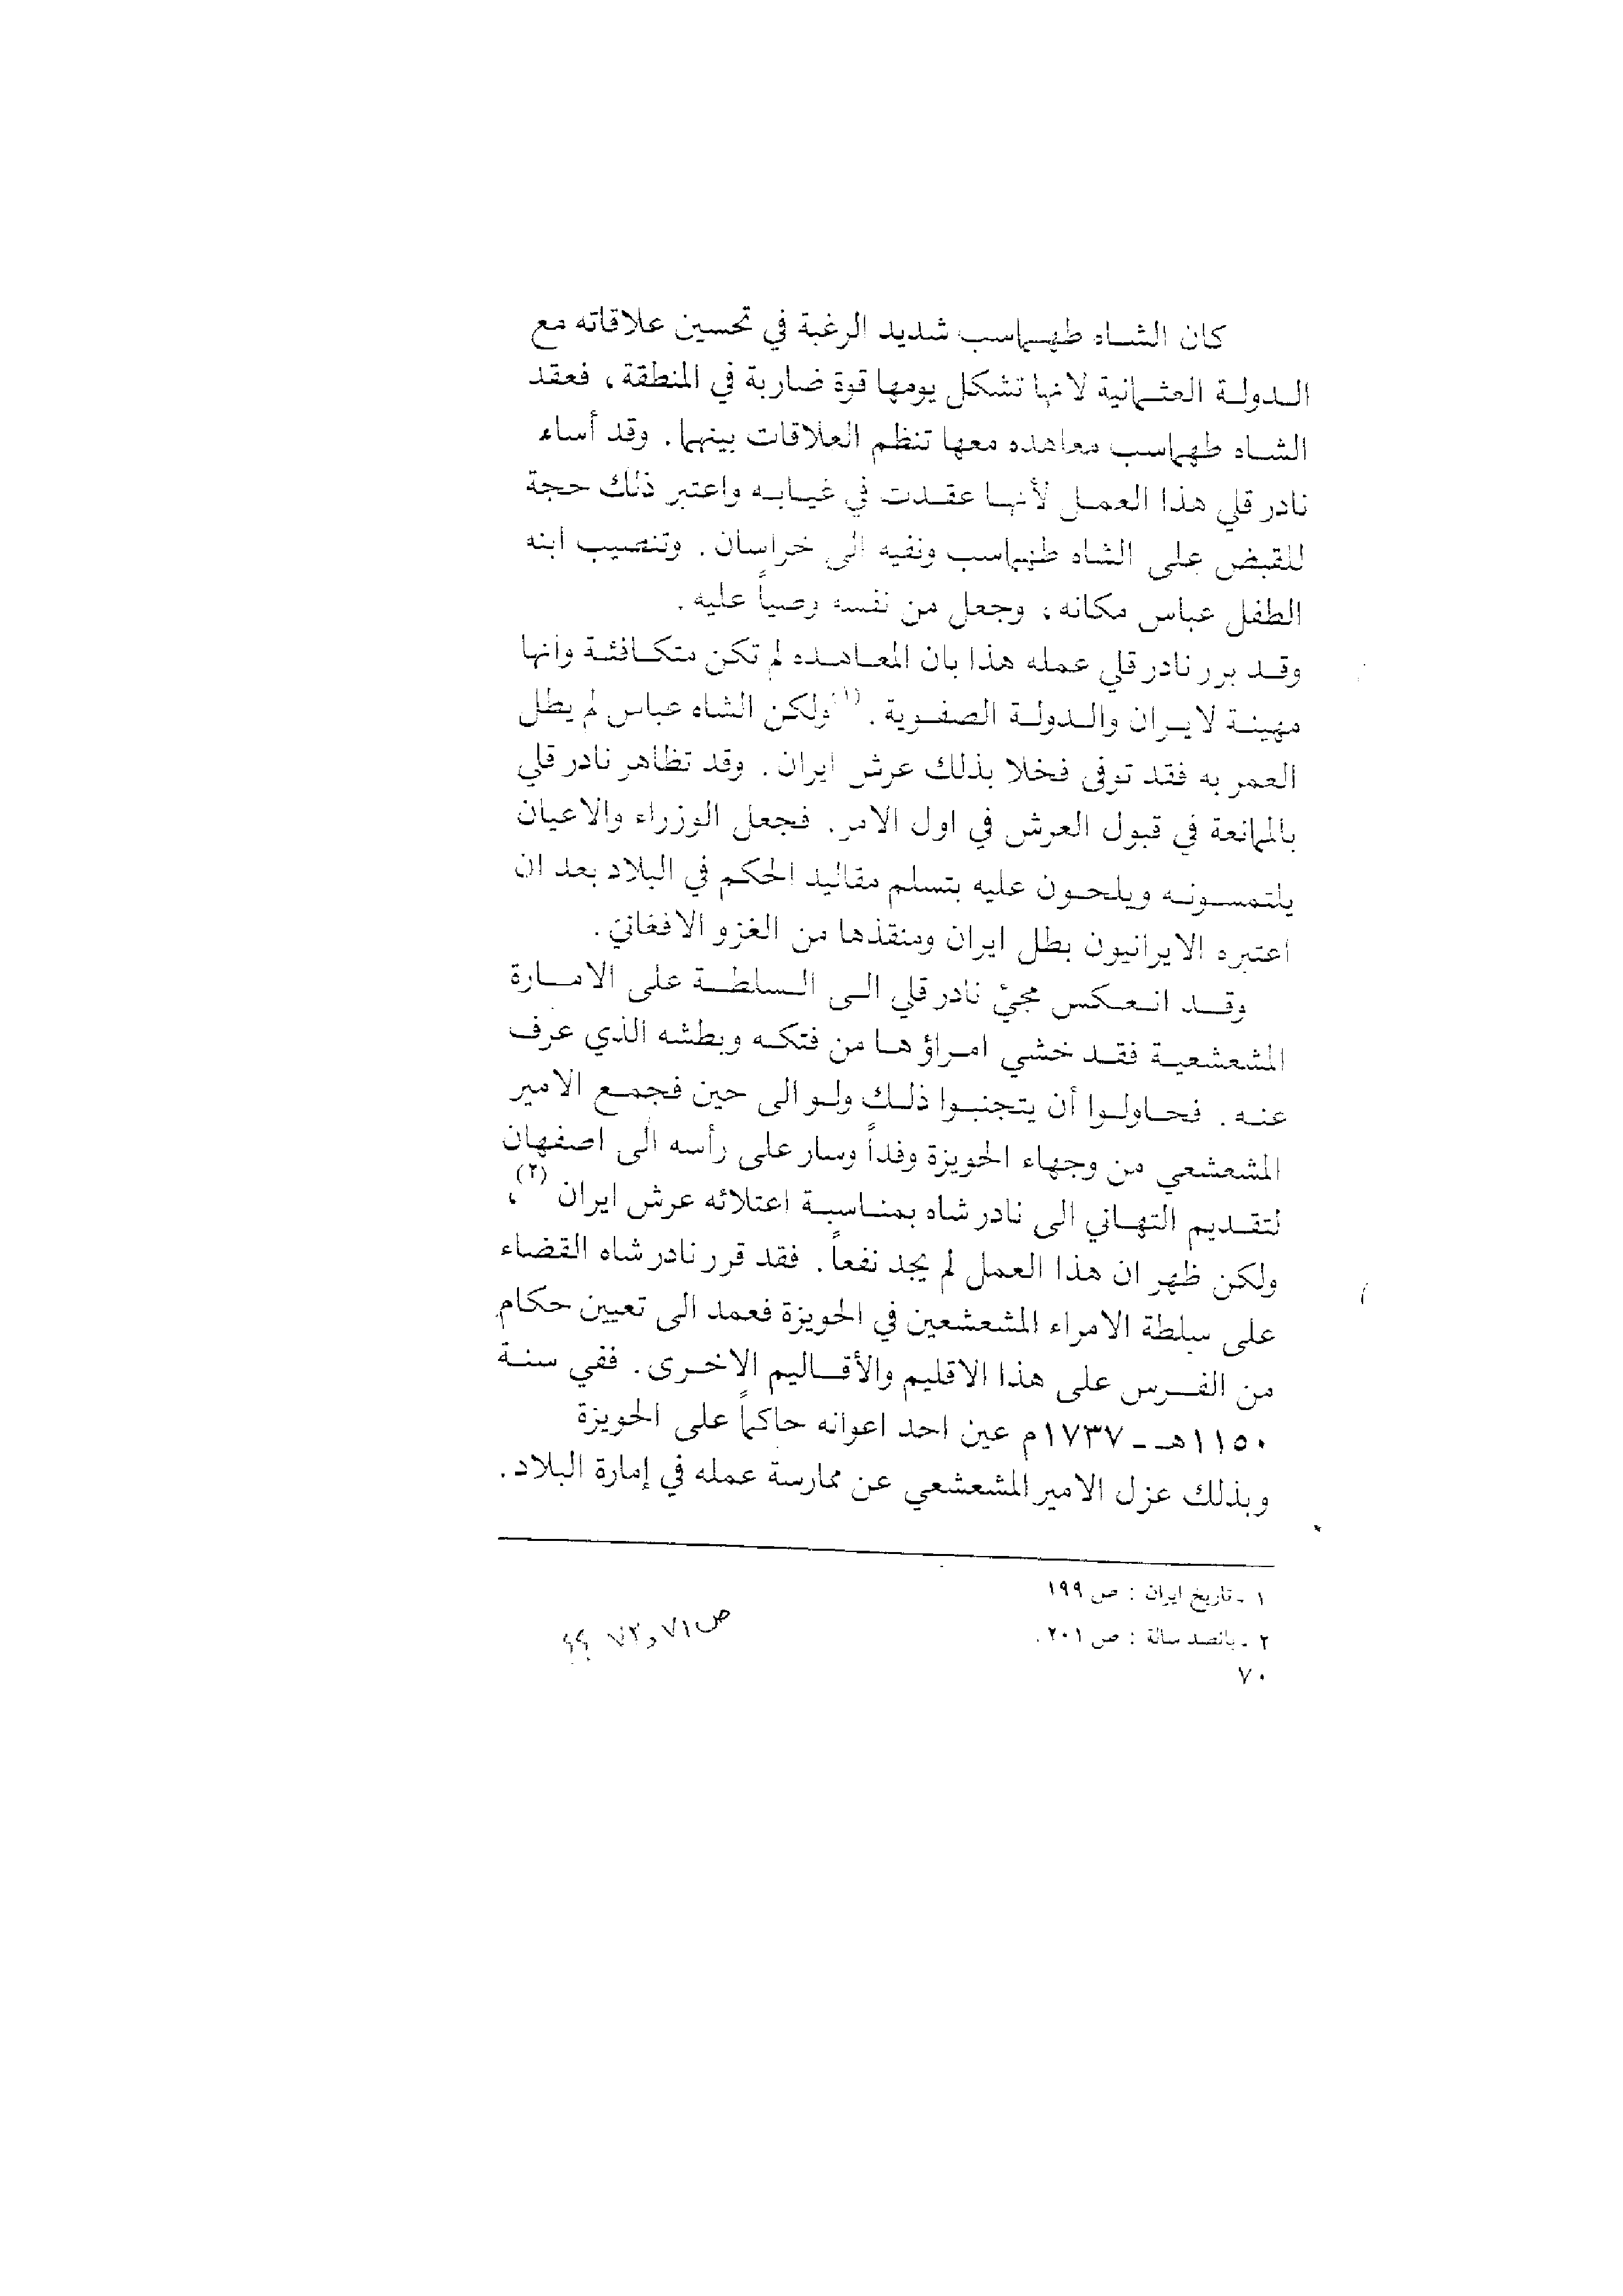 كان الشاه طهماسب شديد الرغبة في تحسين علاقاته مع
الدولة العثمانية لانها تشكل يومها قوة ضاربة في المنطقة، فعقد
الشاه طهماسب معاهده معها تنظم العلاقات بينهما. وقد أساء
نادر قلي هذا العمل لأنها عقدت في غيابه واعتبر ذلك حجة
للقبض على الشاه طهماسب ونفيه الى خراسان. وتنصيب ابنه
الطفل عباس مكانه، وجعل من نفسه وصياً عليه.
وقد برر نادر قلي عمله هذا بان المعاهده لم تكن متكافئة وانها
مهينة لايران والدولة الصفوية.(١) ولكن الشاه عباس لم يطل
العمر به فقد توفى فخلا بذلك عرش ايران. وقد تظاهر نادر قلي
بالممانعة في قبول العرش في اول الامر. فجعل الوزراء والاعيان
يلتمسونه ويلحون عليه بتسلم مقاليد الحكم في البلاد بعد ان
اعتبره الايرانيون بطل ايران ومنقذها من الغزو الافغاني.
وقد انعكس مجيء نادر قلي الى السلطة على الامارة
المشعشعية فقد خشي امراؤها من فتكه وبطشه الذي عرف
عنه. فحاولوا أن يتجنبوا ذلك ولو الى حين فجمع الامير
المشعشعي من وجهاء الحويزة وفداً وسار على رأسه الى اصفهان
لتقديم التهاني الى نادر شاه بمناسبة اعتلائه عرش ايران (٢)،
ولكن ظهر ان هذا العمل لم يجد نفعاً. فقد قرر نادر شاه القضاء
على سلطة الامراء المشعشعين في الحويزة فعمد الى تعيين حكام
من الفرس على هذا الاقليم والأقاليم الاخرى. ففي سنة
١١٥٠هـ - ١٧٣٧م عين احد اعوانه حاكماً على الحويزة
وبذلك عزل الامير المشعشعي عن ممارسة عمله في إمارة البلاد.
١ - تاريخ ايران : ص ١٩٩
٢ - بانصد سالة : ص ٢٠١.
ص ٧١ و ٧٢ ؟؟
٧٠